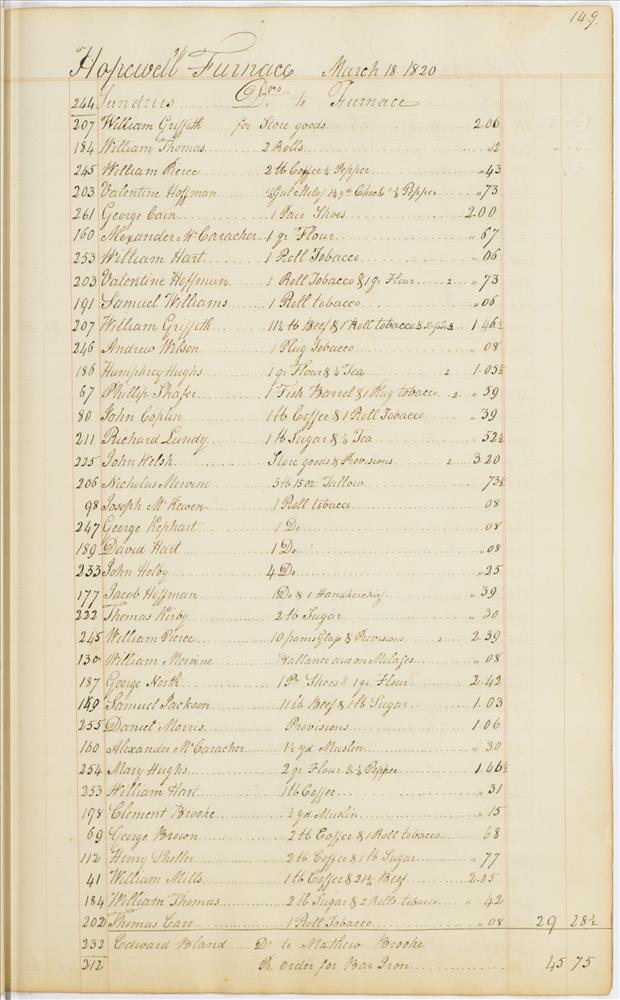 149
Hopewell Furnace March 18th 1820
244 Sundries Drs to Furnace
207 William Griffith for Store goods 2.06
184 William Thomas 2 Rolls "12
245 William Pierce 2 lb Coffee & Pepper "43
203 Valentine Hoffman Gal Molas Check & Pepper "73
261 George Cain 1 Pair Shoes 2.00
160 Alexander McCaracher 1 qr Flour " 67
253 William Hart 1 Roll Tobacco " 06
203 Valentine Hoffman 1 Roll Tobacco & 1 qr Flour 2 " 73
191 Samuel Williams 1 Roll tobacco "06
207 William Griffith 11½ lb Beef & 1 Roll tobacco 1 46½
246 Andrew Wilson 1 Plug Tobacco " 08
186 Humphrey Hughs 1 qr Flour & ¼ Tea 2 1.05½
67 Phillip Shafer 1 Fish Barrel & 1 Plug tobacco 2 " 59
80 John Coplin 1 lb Coffee & 1 Roll Tobacco " 39
211 Richard Lundy 1 lb Sugar & ¼ Tea " 52½
225 John Welsh Store goods & Provisions 2 3 20
206 Nicholas Mervine 5 lb 15 oz Tallow 73½
98 Joseph McKewen 1 Roll tobacco 08
247 George Kephart 1 Do " 08
189 David Hart 1 Do " 08
233 John Holby 4 Do " 25
177 Jacob Hoffman 1 Do & 1 Handkerchief " 39
222 Thomas Kirby 2 lb Sugar " 30
245 William Pierce 10 panes Glass & Provisions 2 2.39
130 William Mervine Ballance due on Molases " 08
187 George North 1 Pr Shoes & 1 qr Flour 2.42
149 Samuel Jackson 11 lb Beef & 1 lb Sugar 1.03
255 Daniel Morris Provisions 1.06
160 Alexander McCaracher 1½ yd Muslin " 30
254 Mary Hughs 2 qr Flour & ¼ Pepper 1.46½
253 William Hart 1 lb Coffee " 31
198 Clement Brooke ½ yd Muslin " 15
69 George Brown 2 lb Coffee & 1 Roll tobacco 68
112 Henry Sheller 2 lb Coffee & 1 lb Sugar " 77
41 William Mills 1 lb Coffee & 21½ Beef 2.05
184 William Thomas 2 lb Sugar & 2 Rolls tobacco " 42
202 Thomas Care 1 Roll Tobacco " 08 29 28½
232 Edward Bland Dr to Mathew Brooke
312 Pr. Order for Bar Iron 45 75